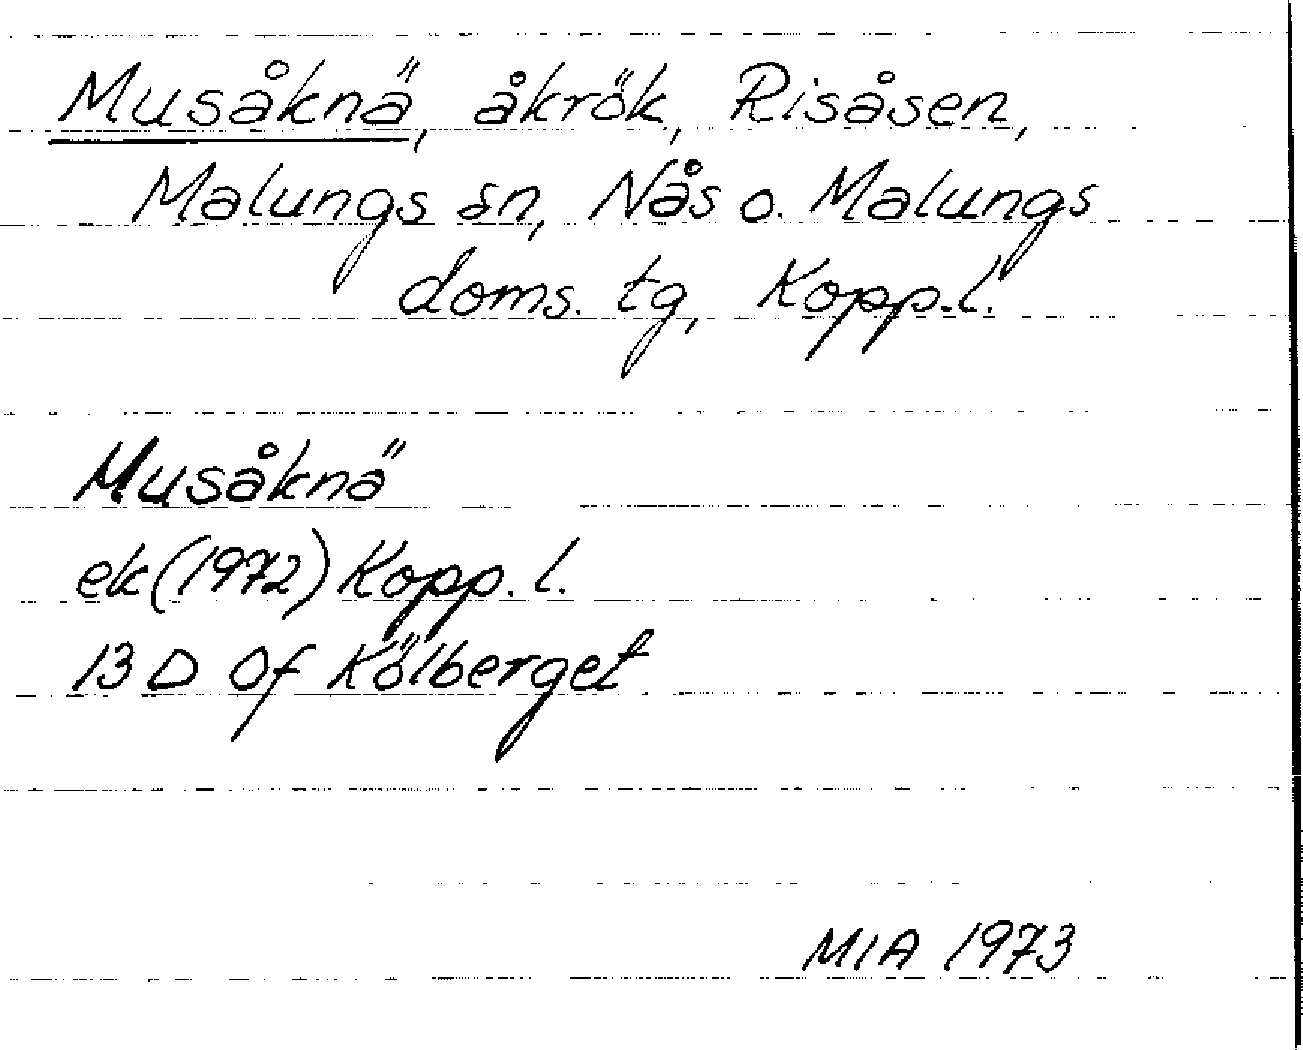 Musåknä, åkrök, Risåsen,
Malungs sn, Nås o. Malungs
doms. tg, Kopp.l.
Musåknä
ek (1972) Kopp. l.
13 D 0f Kölberget
MIA 1973